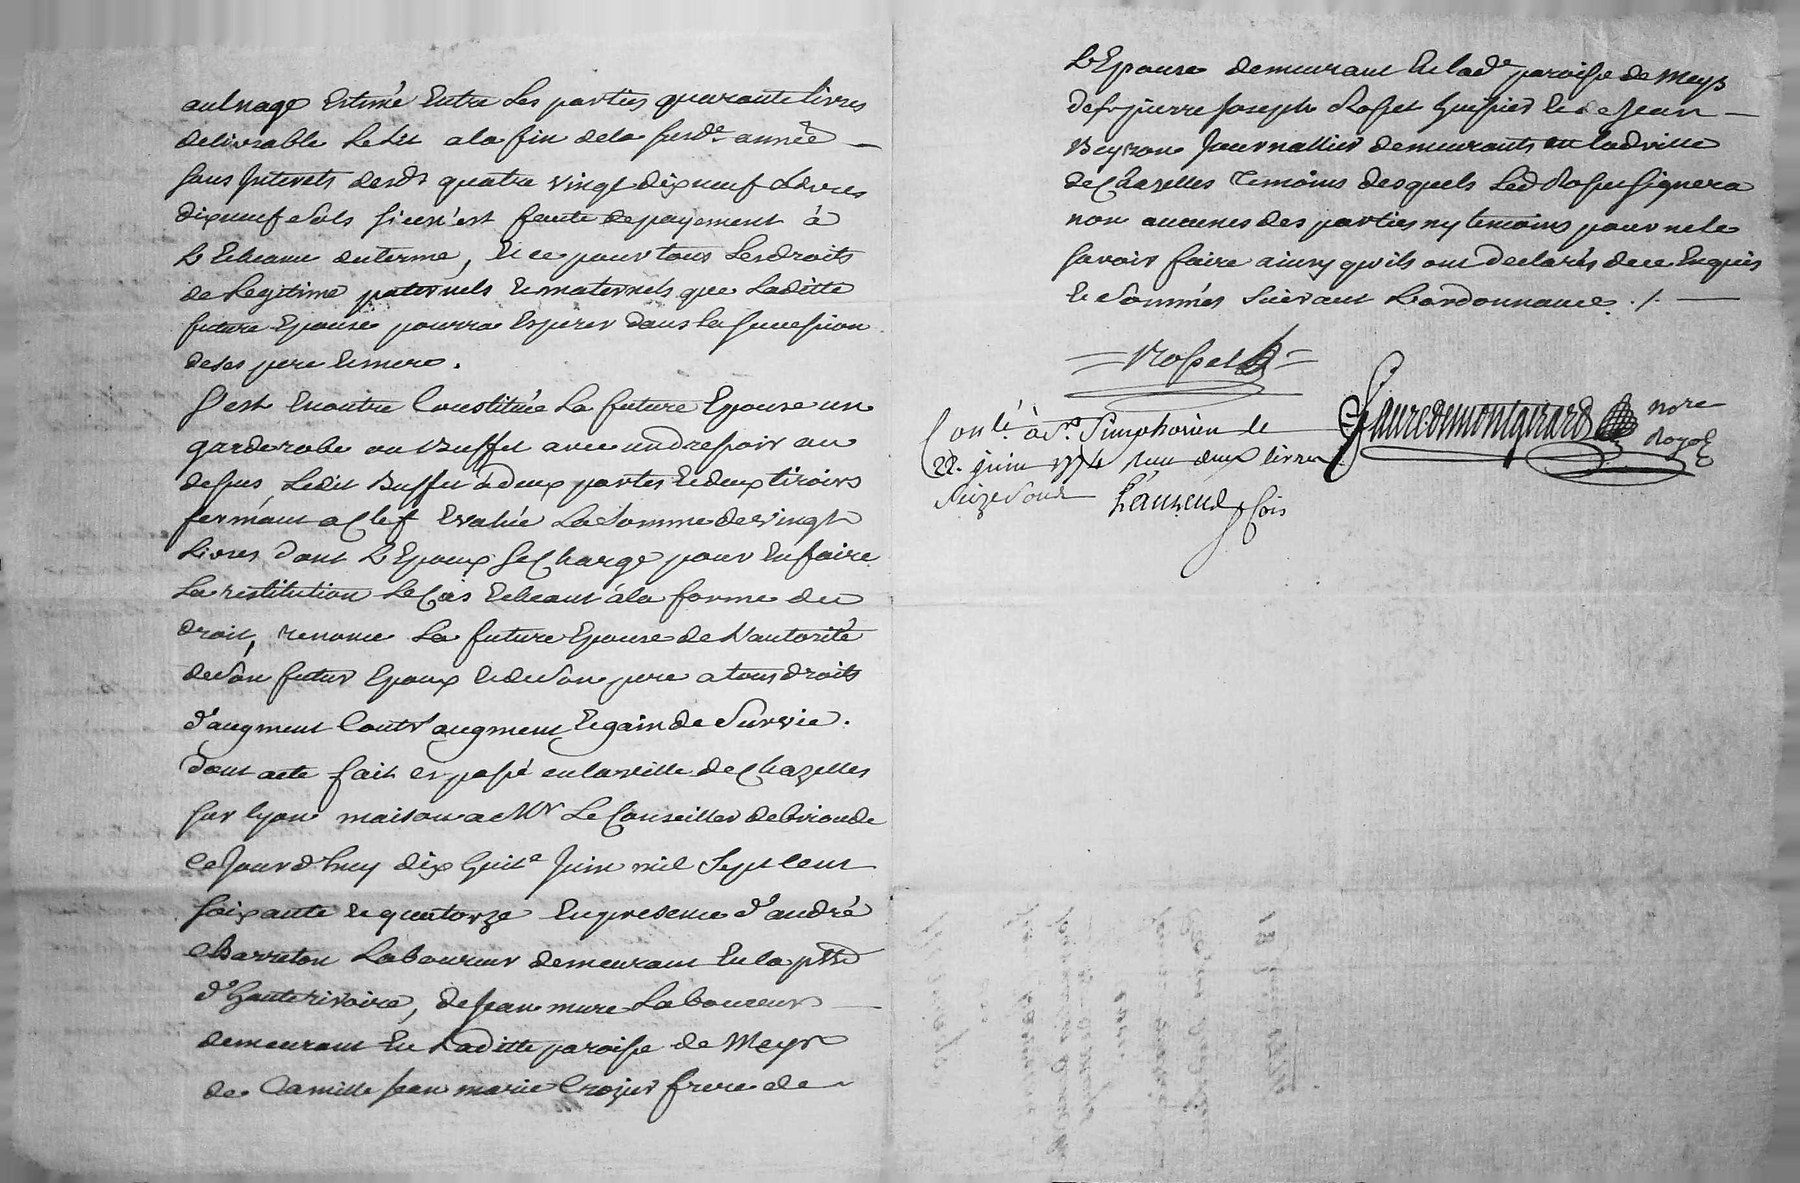 aulnage Estimé Entre Les parties quarante livres
delivrable Le lit a la fin de la susde année
sans Interets desds quatre vingt dix neuf Livres
dix neuf sols si ce n'est faute de payement à
L'Echeance du terme, Et ce pour tous Les droits
de Legitime paternels Et maternels que Laditte
future Epouse pourra Esperer dans La succession
de ses pere Et mere.
S'est Enoutre Constituée La future Epouse un
garderobe ou Buffet avec un dressoir au
dessus Ledit Buffet a deux portes Et deux tiroirs
fermant a Clef Evalué La Somme de vingt
Livres dont L'Epoux se Charge pour En faire
La restitution Le Cas Echeant à la forme du
droit, renonce La future Epouse de L'autorité
de Son futur Epoux Et de Son pere a tous droits
d'augment Contr'augment Et gain de Survie.
dont acte fait et passé en la ville de Chazelles
sur lyon maison a Mr Le Conseiller debrioude
Ce Jourd'huy dix huite Juin mil Sept Cent
soixante Et quatorze En presence d'andré
Barreton Laboureur demeurant En la psse
d'hauterivoire, de Jean mure Laboureur
demeurant En Laditte paroisse de Meys
de Camille Jean marie Crozier frere de
L'Epouse demeurant En lade paroisse de Meys
de sr pierre Joseph Rosset huissier Et de Jean
Beyron Journallier demeurants en ladville
de Chazelles Temoins desquels Led Rosset signera
non aucunes des parties ny temoins pour ne le
savoir faire ainsy qu'ils ont declarés de ce Enquis
Et Sommés Suivant L'ordonnance ./.
Rosset
Fauredemontgirard nore
Royal
Conlé à St Simphorien le
22. juin 1774 Reçu deux livres
Seize Sous
Laurend Cois